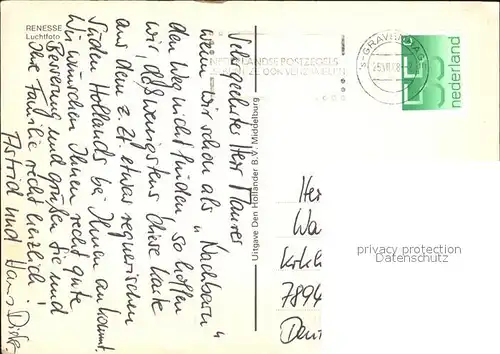 RENESSE
Luchtfoto
Sehr geehrter Herr Maurer
wenn wir schon als "Nachbarn"
den Weg nicht finden, so hoffen
wir daß wenigstens diese Karte
aus dem z. Zt. etwas regnerischen
Süden Hollands bei Ihnen ankommt.
Wir wünschen Ihnen recht gute
Besserung und grüßen Sie und
Ihre Familie recht herzlich!
Astrid und Hans
Uitgave Den Hollander B.V. Middelburg
NEDERLANDSE POSTZEGELS
'S-GRAVENHAGE
55
nederland
Her
Wa
7894
privacy protection
Datenschutz